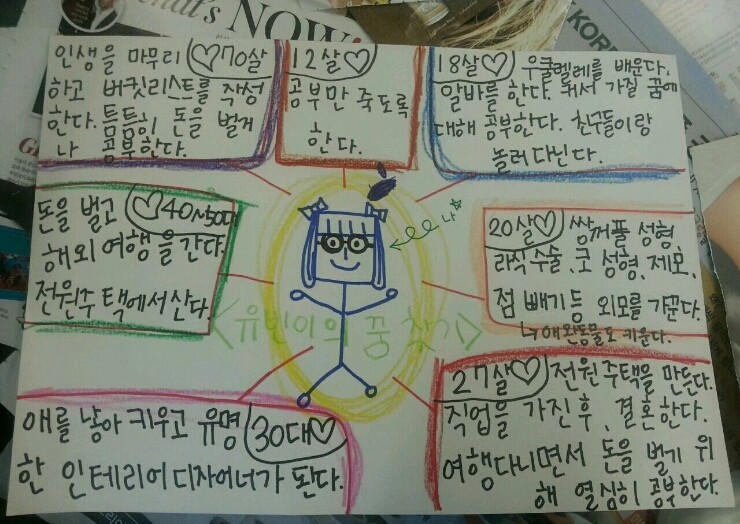 NOW
KOR
12살♡
공부만 죽도록
한다.
18살♡ 우쿨렐레를 배운다.
알바를 한다. 커서 가질 꿈에
대해 공부한다. 친구들이랑
놀러다닌다.
20살♡ 쌍꺼풀 성형,
라식수술, 코 성형, 제모,
점 빼기 등 외모를 가꾼다.
↳애완동물도 키운다.
27살♡ 전원주택을 만든다.
직업을 가진 후, 결혼한다.
여행다니면서 돈을 벌기 위
해 열심히 공부한다.
30대♡
애를 낳아 키우고 유명
한 인테리어 디자이너가 된다.
♡40~50대
돈을 벌고
해외여행을 간다.
전원주택에서 산다.
♡70살
인생을 마무리
하고 버킷리스트를 작성
한다. 틈틈히 돈을 벌거
나 공부한다.
나☆
<유빈이의 꿈 찾기>